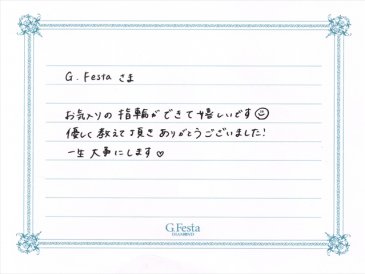 G.Festa さま
お気入りの 指輪ができて 嬉しいです☺
優しく 教えて頂き ありがとうございました!
一生 大事にします♡
G.Festa
DIAMOND